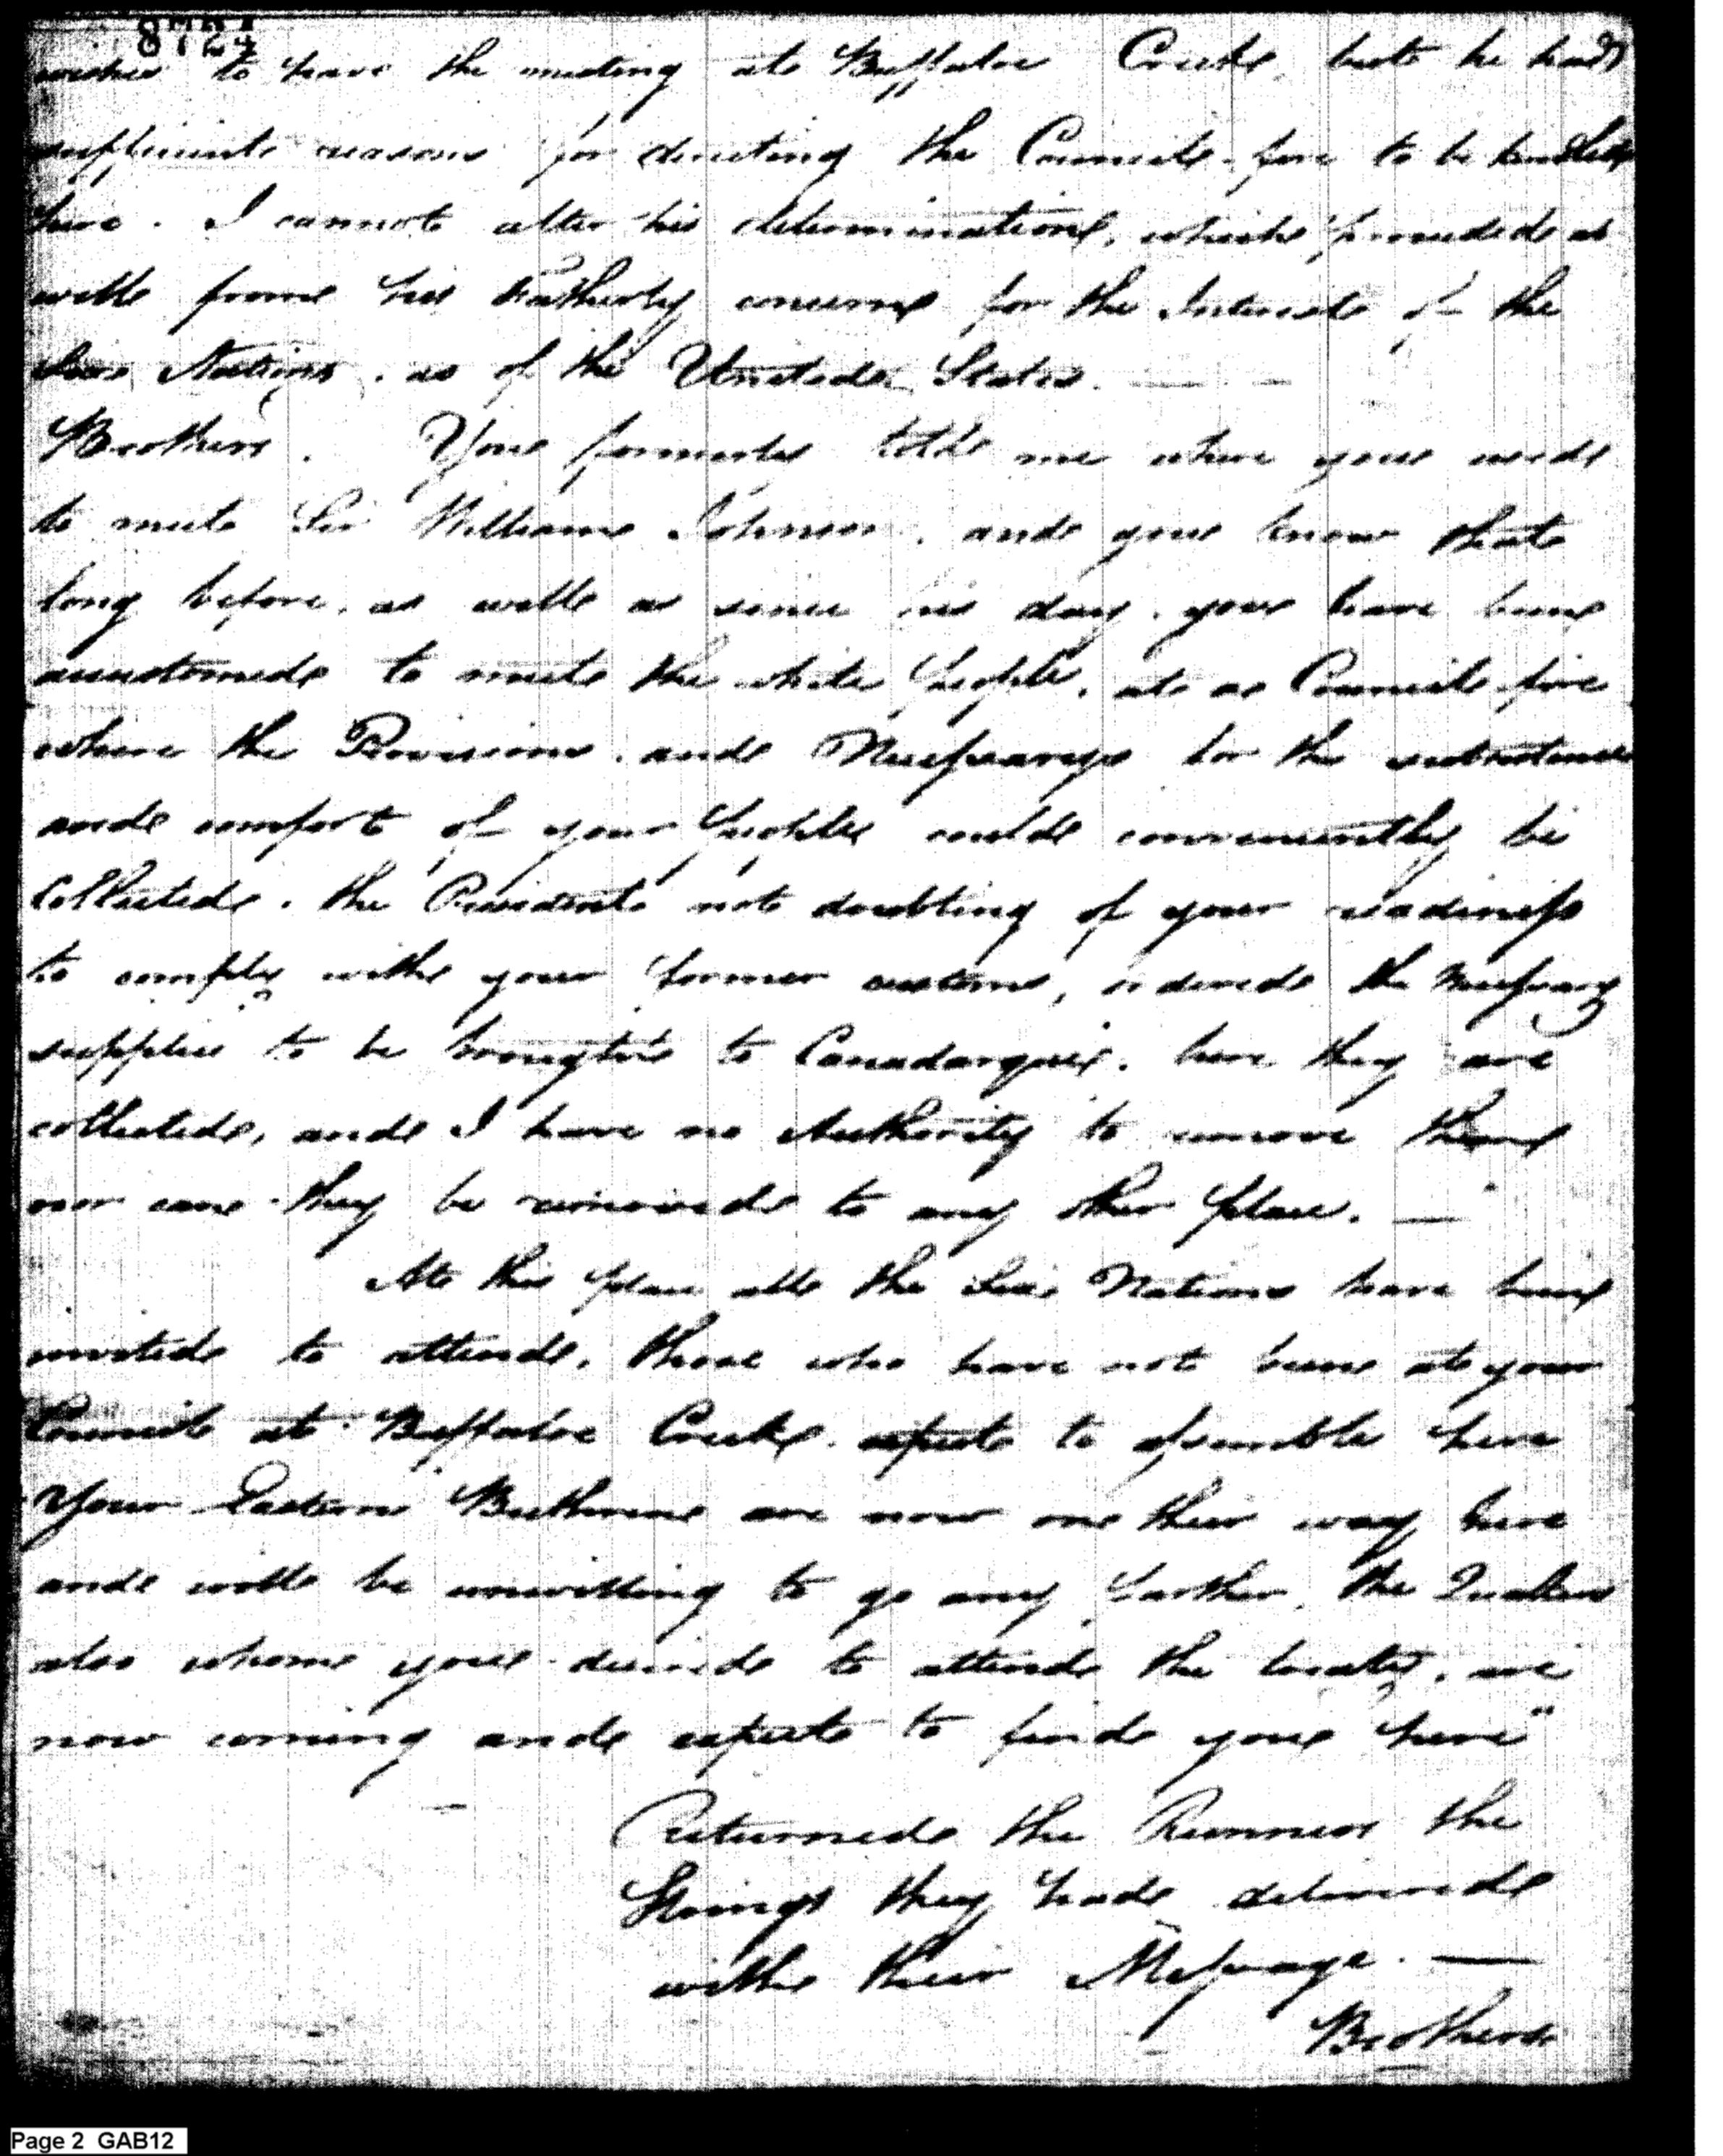 8724
wishes to have the meeting at Buffaloe Creek, but he had
sufficient reasons for directing the Council fire to be kindled
here. I cannot alter his determination, which proceeded as
well from his Fatherly concern for the Interests of the
Six Nations, as of the United States. — —
Brothers. You formerly told me where you used
to meet Sir William Johnson, and you know that
long before, as well as since his day, you have been
accustomed to meet the white People, at a Council fire
where the Provisions, and Necessarys for the subsistance
and comfort of your People could conveniently be
Collected. the President not doubting of your readiness
to comply with your former customs, ordered the necessary
supplies to be brought to Canadarquie. here they are
collected, and I have no Authority to remove them
nor can they be removed to any other place. —
At this place all the Six Nations have been
invited to attend. Those who have not been at your
Council at Buffaloe Creek expect to assemble here
Your Eastern Brethren are now on their way here
and will be unwilling to go any further, The Quakers
also whom you desired to attend the treaty, are
now coming and expect to find you here"
Returned the Runners the
Strings they had delivered
with their Message. —
Brothers
Page 2 GAB12